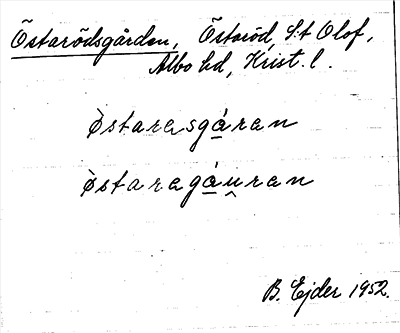 Östarödsgården, Östaröd, S:t Olof,
Albo hd, Krist. l.
ø̀starasgá̱ran
ø̀staragá̱u̯ran
B. Ejder 1952.